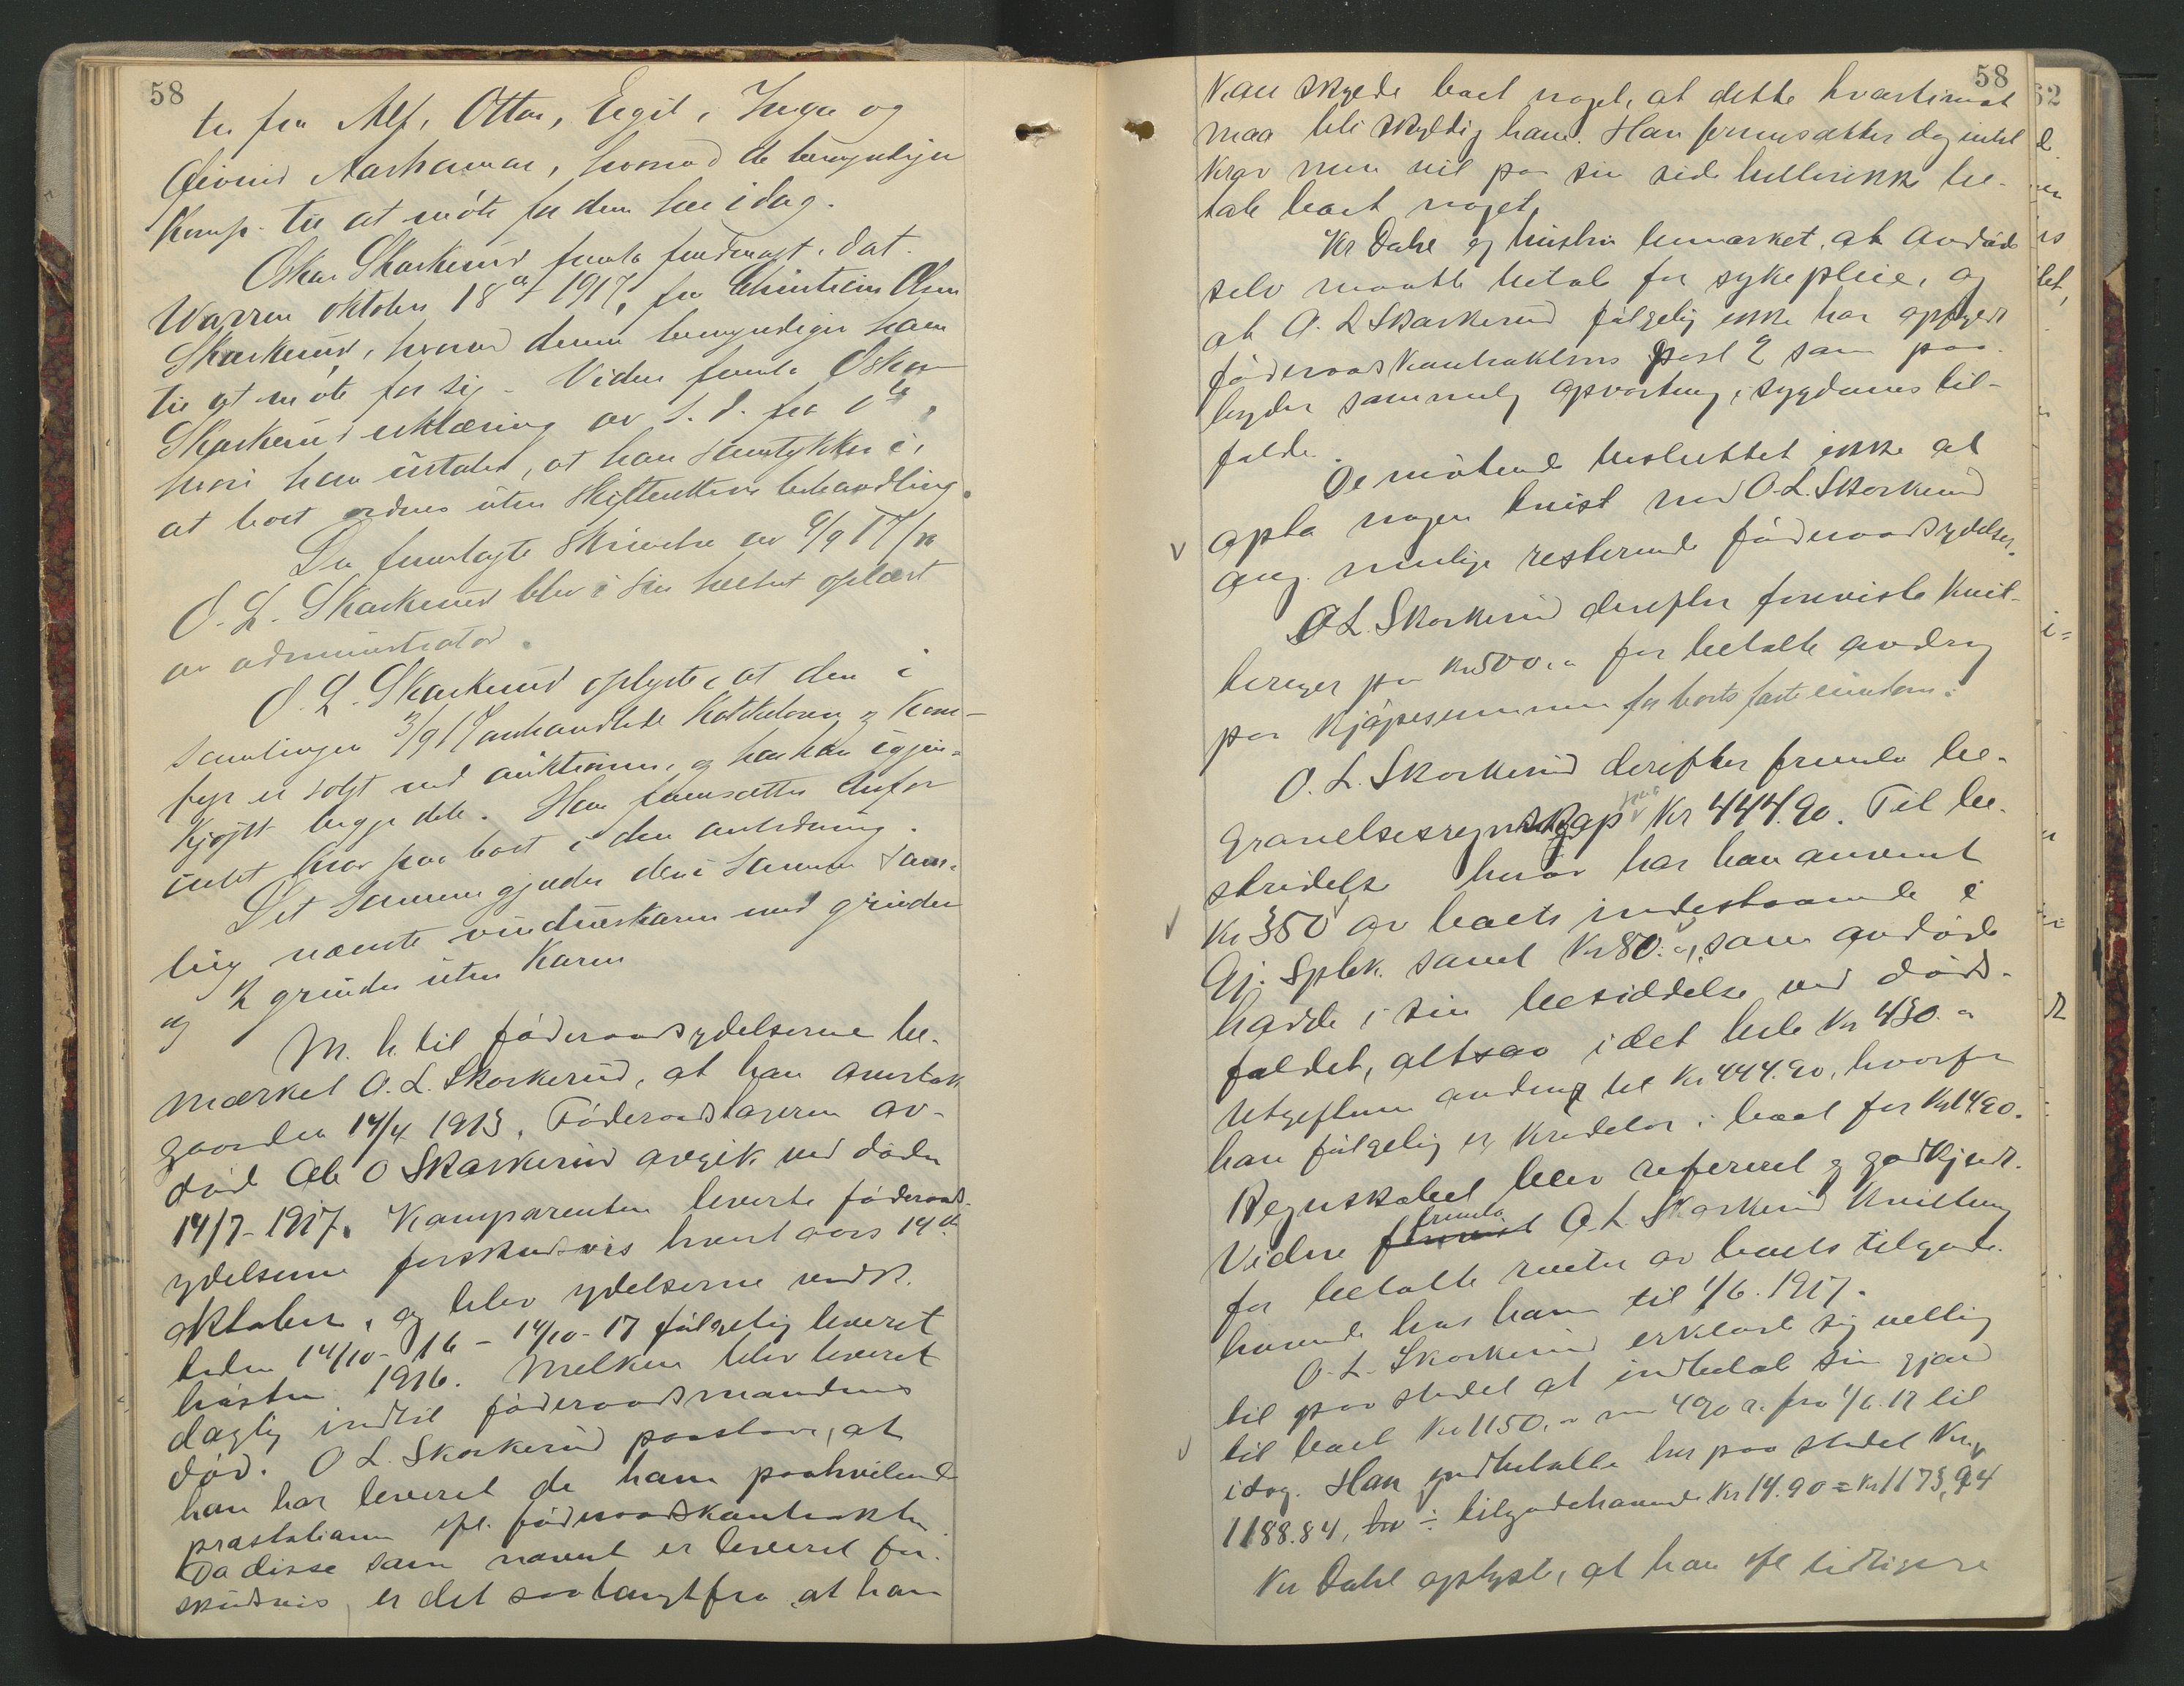 58
te fra Alf, Ottar, Eigil, Inga og
Øivind Aashamar, hvorved de bemyndiger
Komp. til at møte for dem her idag.
Oskar Skarkerud fremla fuldmagt, dat.
Warren oktober 18de 1917, fra Christian Olsen
Skarkerud, hvorved denne bemyndiger ham
til at møte for sig. Videre fremla Oskar
Skarkerud erklæring av s. d. fra
hvori han uttaler, at han samtykker i,
at boet ordnes uten skifterettens behandling.
Den fremlagte skrivelse av 9/9 17 fra
O. L. Skarkerud blev i sin helhet oplæst
av administrator.
O. L. Skarkerud oplyste, at den i
samlingen 3/9 17 omhandlede Kakkelovn og Kom-
fyr er solgt ved auktionen, og har han igjen-
kjøpt begge dele. Han fremsætter derfor
intet krav paa boet i den anledning.
Det samme gjælder den i samme sam-
ling nævnte vindueskarm med grinder
og 2 grinder uten Karm
M. h. til føderaadsydelserne be-
merket O. L. Skarkerud, at han overtok
gaarden 14/4 1913. Føderaadstageren av-
død Ole O Skarkerud avgik ved døden
14/7-1917. Komparenten leverte føderaads-
ydelserne forskudsvis hvert aars 14de
oktober, og blev ydelserne vedk.
tiden 14/10-16 - 14/10-17 følgelig leveret
høsten 1916. Melken blev leveret
daglig indtil føderaadsmandens
død. O L. Skarkerud paastaar, at
han har leveret de ham paahvilende
præstationer efl. føderaadskontrakten.
Da disse som nævnt er leveret for-
skudsvis, er det saa langt fra at han
58
Kan skylde boet noget, at dette hvertimot
maa bli skyldig ham. Han fremsætter dog intet
Krav men vil paa sin side hellerikke be-
tale boet noget.
Kr Dahl og hustru bemerket, at avdøde
selv maatte betale for sykepleie, og
at O. L Skarkerud følgelig ikke har opfyldt
føderaadskontraktens post 2 som paa-
byder sømmelig opvartning i sygdomstil-
fælde.
De møtende besluttet ikke at
opta nogen tvist med O. L. Skarkerud
ang. mulige resterende føderaadsydelser.
O L. Skarkerud derefter foreviste kvit-
teringer paa Kr 500.- for betalte avdrag
paa Kjøpesummen for boets faste eiendom.
O. L. Skarkerud derefter fremla be-
gravelsesregnskap Kr 444.90. Til be-
stridelse herav har han anvendt
Kr 350 av boets indestaaende i
Gj. Spbk. samt Kr 80.-, som avdøde
hadde i sin besiddelse ved døds-
faldet, altsaa i det hele Kr 430.-
Utgifterne androg til Kr 444.90, hvorfor
han følgelig er Kreditor i boet for Kr 14.90.
Regnskabet blev refereret og godkjendt.
Videre fremla O. L. Skarkerud Kvittering
for betalte renter av boets tilgode-
havende hos ham til 1/6. 1917.
O. L. Skarkerud erklærte sig villig
til paa stedet at indbetale sin gjæld
til boet Kr 1150.- 4 90 a. fra 1/6. 17 til
idag. Han indbetalte her paa stedet Kr
1188.84, ÷ tilgodehavende Kr 14.90 = Kr 1173,94
Kr Dahl oplyste, at han efl tidligere
62